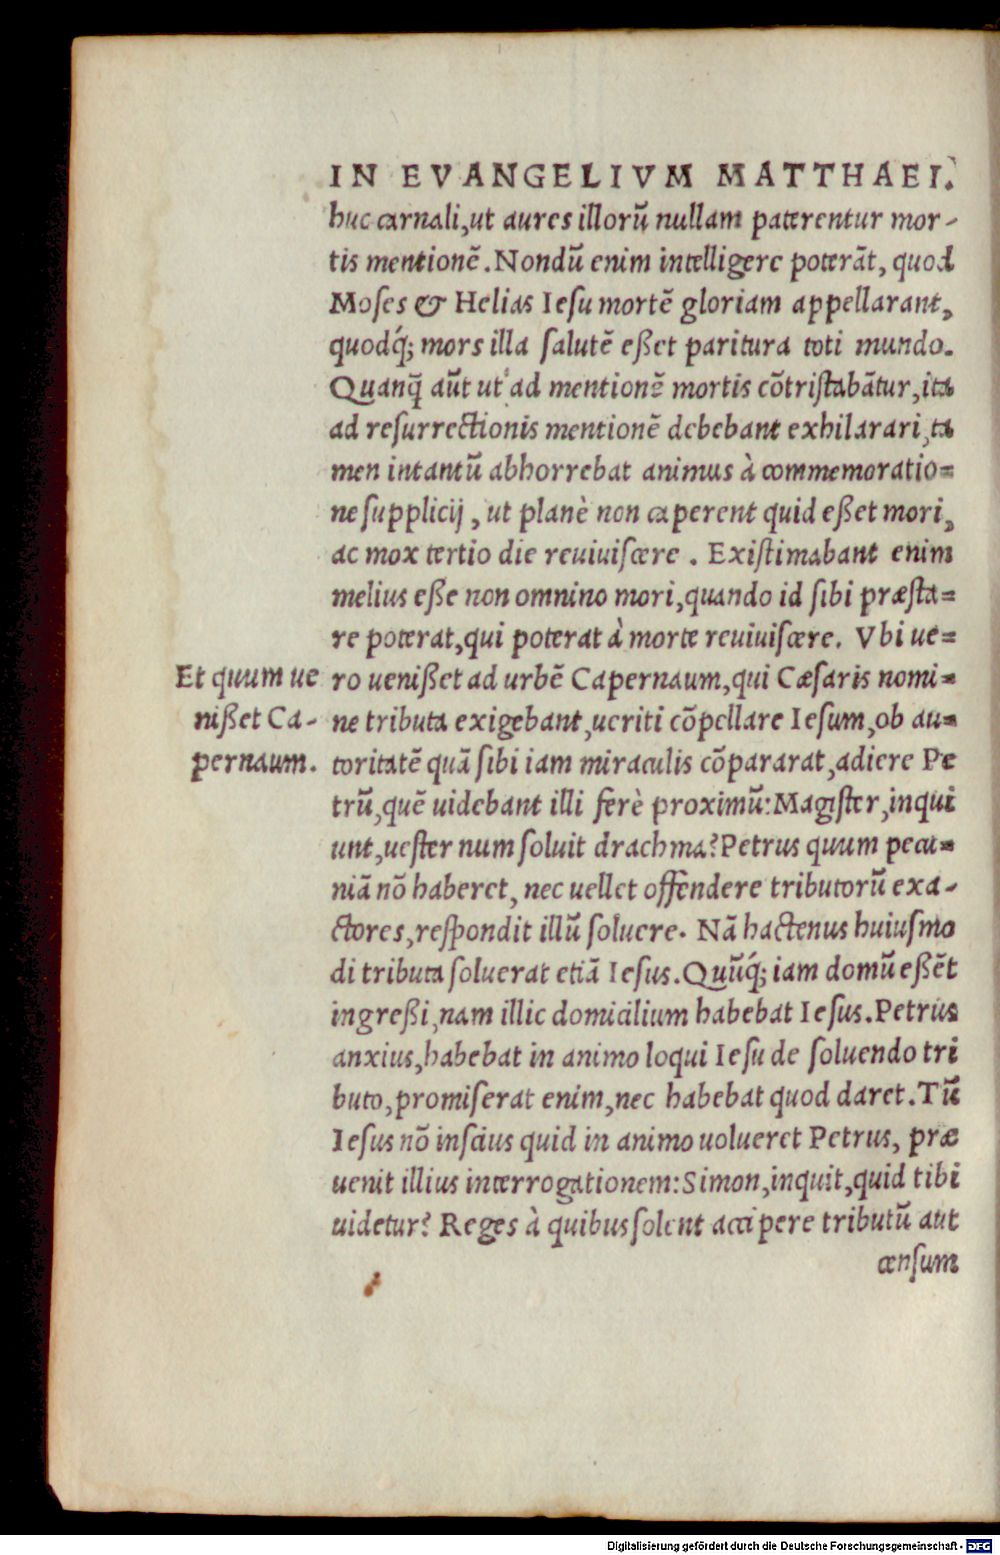 IN EVANGELIVM MATTHAEI.
huc carnali,ut aures illorũ nullam paterentur mor-
tis mentionẽ.Nondũ enim intelligere poterãt, quod
Moses & Helias Iesu mortẽ gloriam appellarant,
quodq́; mors illa salutẽ eßet paritura toti mundo.
Quanq̃ aũt ut ad mentionẽ mortis cõtristabãtur,ita
ad resurrectionis mentionẽ debebant exhilarari,ta
men intantũ abhorrebat animus à commemoratio=
ne supplicij, ut planè non caperent quid eßet mori,
ac mox tertio die reuiuiscere. Existimabant enim
melius eße non omnino mori,quando id sibi præsta=
re poterat,qui poterat à morte reuiuiscere. Vbi ue=
Et quum ue
nißet Ca-
pernaum.
ro uenißet ad urbẽ Capernaum,qui Cæsaris nomi=
ne tributa exigebant,ueriti cõpellare Iesum,ob au=
toritatẽ quã sibi iam miraculis cõpararat,adiere Pe
trũ,quẽ uidebant illi ferè proximũ:Magister,inqui
unt,uester num soluit drachma?Petrus quum pecu=
niã nõ haberet, nec uellet offendere tributorũ exa-
ctores,respondit illũ soluere. Nã hactenus huiusmo
di tributa soluerat etiã Iesus.Quũq́; iam domũ eßẽt
ingreßi,nam illic domicilium habebat Iesus.Petrus
anxius,habebat in animo loqui Iesu de soluendo tri
buto,promiserat enim,nec habebat quod daret.Tũ
Iesus nõ inscius quid in animo uolueret Petrus, præ
uenit illius interrogationem:Simon,inquit,quid tibi
uidetur? Reges à quibus solent accipere tributũ aut
censum
Digitalisierung gefördert durch die Deutsche Forschungsgemeinschaft - DFG